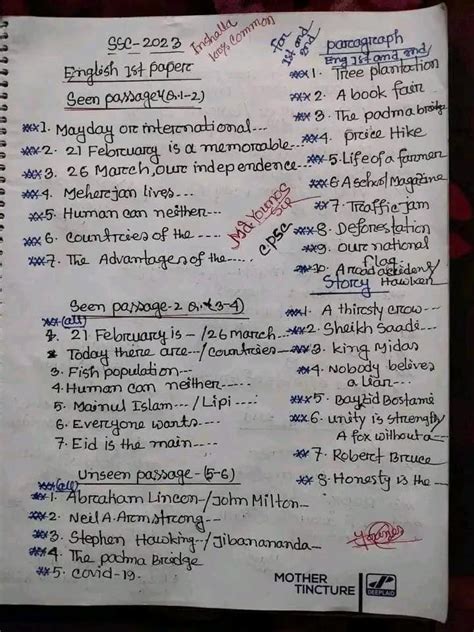 SSC-2023
Inshalla
100% Common
English 1st paper
Seen passage
(Q.1-2)
***1. Mayday or international---
***2. 21 February is a memorable---
***3. 26 March, our independence---
***4. Meherjan lives---
**5. Human can neither---
***6. Countries of the---
***7. The Advantages of the---
Md Younos
Sir
CPSC
Seen passage-2 (3-4)
**(all)
1. 21 February is --/26 march---
2. Today there are --/countries---
3. Fish population---
4. Human can neither----
5. Mainul Islam---/Lipi----
6. Everyone wants----
7. Eid is the main----
Unseen passage-(5-6)
**(all)
**1. Abraham Lincon-/John Milton---
**2. Neil A. Armstrong---
**3. Stephen Hawking-/Jibanananda--
**4. The padma Bridge
**5. Covid-19.
For
1st and
2nd
paragraph
Eng 1st and 2nd
***1. Tree plantation
***2. A book fair
***3. The padma bridge
***4. price Hike
***5. Life of a farmer
***6. A school Magazine
**7. Traffic jam
***8. Deforestation
**9. our national
flag.
**10. A road accident/
Hawker
Story
***1. A thirsty crow---
***2. Sheikh Saadi---
***3. king Midas
***4. Nobody belives
a liar---
***5. Bayzid Bostami
***6. unity is strength/
A fox without a--
**7. Robert Bruce
**8. Honesty is the---
Younos
MOTHER
TINCTURE
DEEPLAID